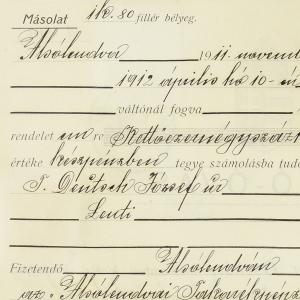 Másolat 1 K. 80 fillér bélyeg.
Alsólendva 1911. novemb
1912 április hó 10-
váltónál fogva
rendelet en re Kettőezernégyszáz
értéke készpénzben tegye számolásba tud
T. Deutsch József úr
Lenti
Fizetendő Alsólendván
az "Alsólendvai Takarékpénz